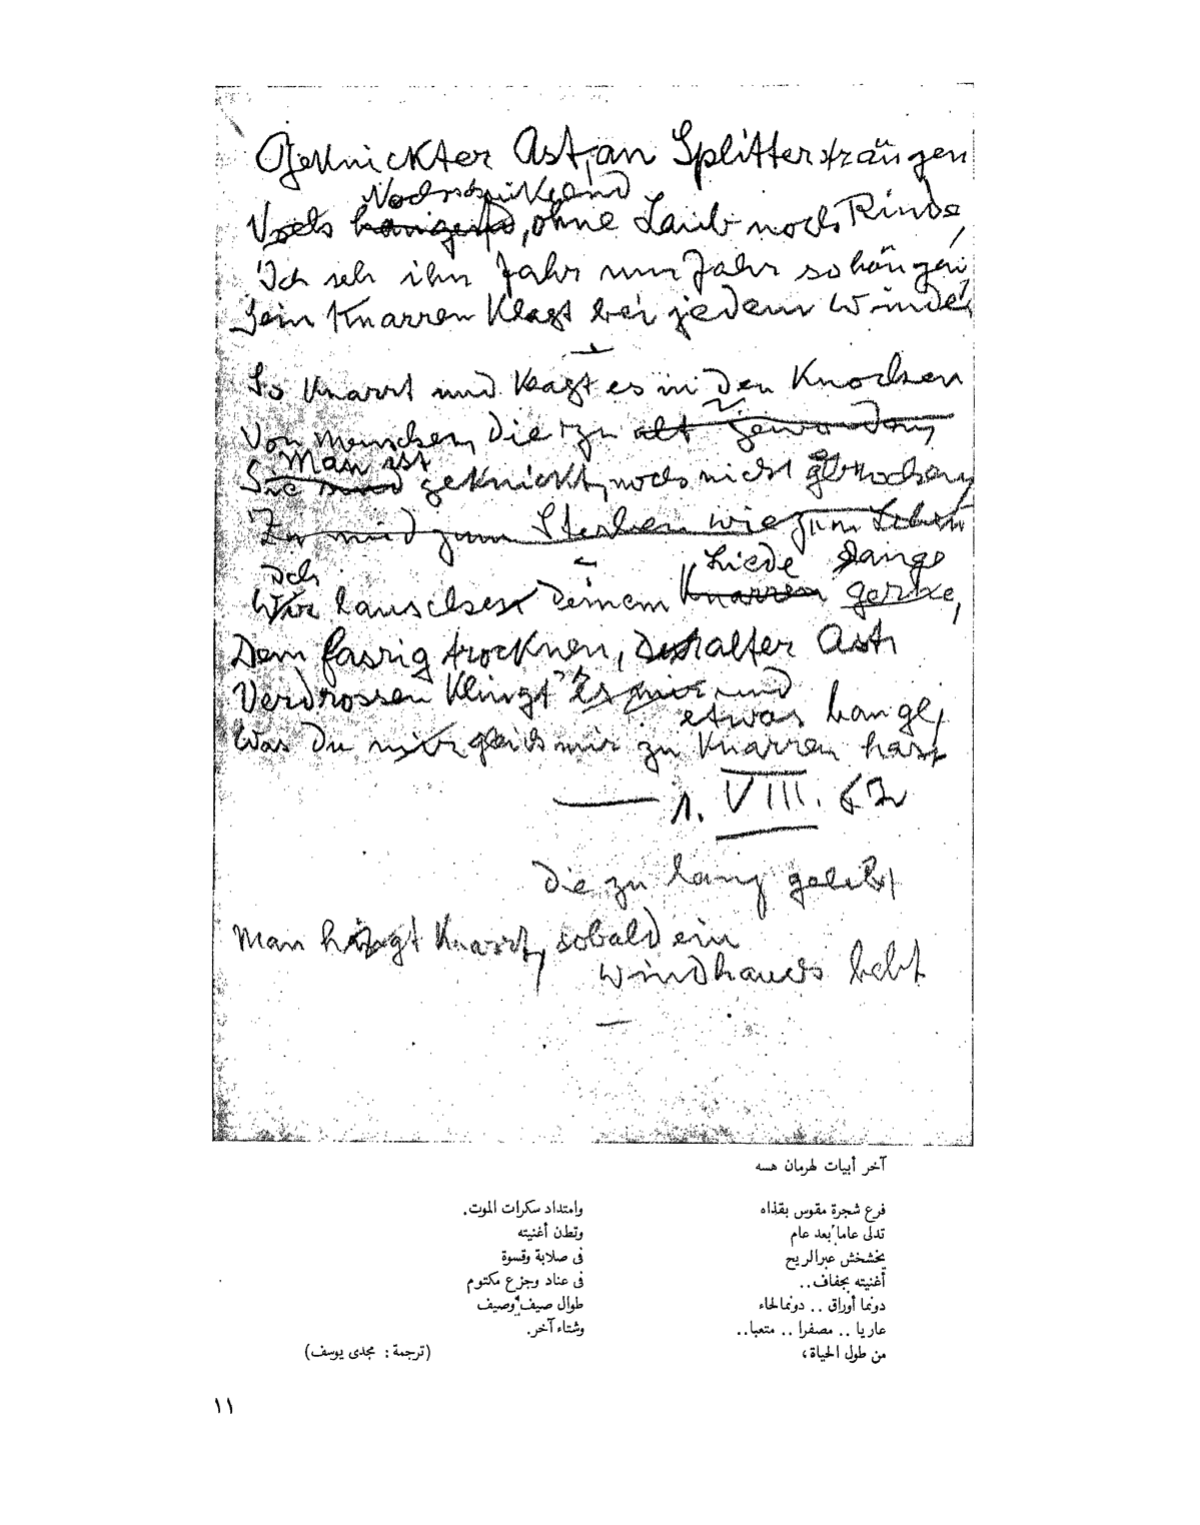 Geknickter Ast, an Splittersträngen
Noch schaukelnd
hangend, ohne Laub noch Rinde,
Ich seh ihn Jahr um Jahr so hängen,
Sein Knarren klagt bei jedem Winde.
So knarrt und klagt es in den Knochen
Von Menschen, die zu alt geworden,
Man ist
Sie sind geknickt, noch nicht gebrochen,
Zu müd zum Sterben wie zum Leben
Ich Liede lange
Wir lauschen deinem Knarren gerne,
Dem fasrig trocknen, alter Ast
Verdrossen klingt's und
etwas bange,
Was du gleich mir zu knarren hast
1. VIII. 62
die zu lang gelebt
Man knarrt, sobald ein
Windhauch bebt
آخر أبيات لهرمان هسه
فرع شجرة مقوس بقذاه
تدلى عاما بعد عام
يخشخش عبر الريح
أغنيته بجفاف..
دونما أوراق .. دونما لحاء
عاريا .. مصفرا .. متعبا..
من طول الحياة،
وامتداد سكرات الموت.
وتطن أغنيته
فى صلابة وقسوة
فى عناد وجزع مكتوم
طوال صيف وصيف
وشتاء آخر.
(ترجمة: مجدى يوسف)
١١